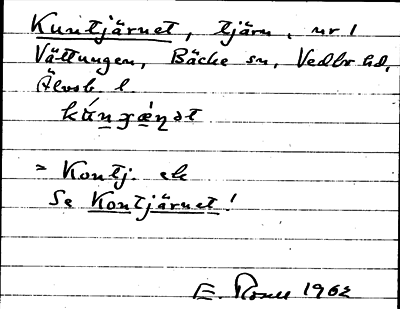 Kuntjärnet, tjärn, nr 1
Vättungen, Bäcke sn, Vedbo hd,
Älvsb. l.
= Kontj. ek
Se Kontjärnet!
E. 1962